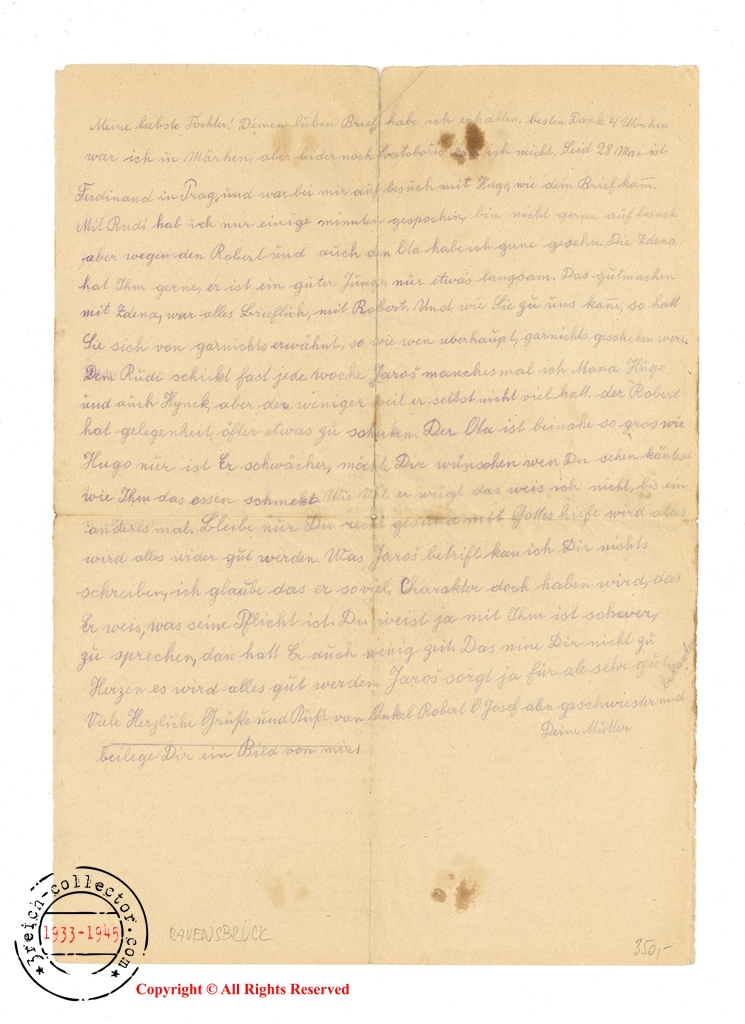 Meine liebste Tochter! Deinen lieben Brief habe ich erhalten, besten Dank 4 Wochen
war ich in Märhen, aber leider nach kam ich nicht. Seid 28 Mai ist
Ferdinand in Prag, und war bei mir auf besuch mit Hugo, wie dein Brief kam̄.
Mit Rudi hab ich nur einige minuten gespochen, bin nicht gerne auf besuch
aber wegen den Robert und auch den Ota habe ich gerne gesehn. Die Zdena
hat Ihm gerne, er ist ein guter Junge, nur etwas langsam. Das gutmachen
mit Zdena, war alles Brieflich, mit Robert. Und wie Sie zu uns kam̄, so hatt
Sie sich von garnichts erwähnt, so wie wen uberhaupt, garnichts geschehen were.
Dem Rudi schickt fast jede woche Jaroš manchesmal ich Mana Hugo
und auch Hynek, aber der weniger weil er selbst nicht viel hatt. der Robert
hat gelegenheit, öfter etwas zu schicken. Der Ota ist beinahe so gros wie
Hugo nur ist Er schwächer, möcht Dir wünschen wen Du sehen käntest
wie Ihm das essen schmekt. Wie Vil er wigt das weis ich nicht, bis ein
anderes mal. Bleibe nur Du recht gesund mit Gottes hilfe wird alles
wird alles wider gut werden. Was Jaroš betrift kan ich Dir nichts
schreiben, ich glaube das er soviel Charakter doch haben wird, das
Er weis, was seine Pflicht ist. Du weist ja mit Ihm ist schwer,
zu sprechen, dan hatt Er auch wenig zeit. Das nime Dir nicht zu
Herzen es wird alles gut werden. Jaroš sorgt ja für ale sehr gut.
Viele Herzliche Grüße und Küße von Onkel Robert O Josef alen geschwiester und
bekante
Deine Mutter
beilege Dir ein Bild von mir!
RAVENSBRÜCK
350,-
3reich-collector.com
1933-1945
Copyright © All Rights Reserved